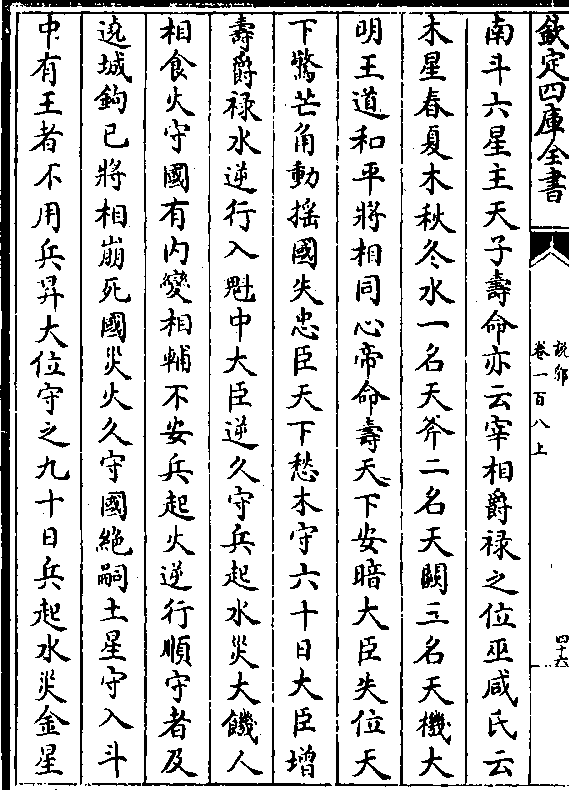 欽定四庫全書
說郛
卷一百八上
四十六
南斗六星主天子壽命亦云宰相爵祿之位巫咸氏云
木星春夏木秋冬水一名天斧二名天闕三名天機大
明王道和平將相同心帝命壽天下安暗大臣失位天
下驚芒角動揺國失忠臣天下愁木守六十日大臣增
壽爵祿水逆行入魁中大臣逆久守兵起水災大饑人
相食火守國有内變相輔不安兵起火逆行順守者及
遶城鉤已將相崩死國災火久守國絶嗣土星守入斗
中有王者不用兵昇大位守之九十日兵起水災金星